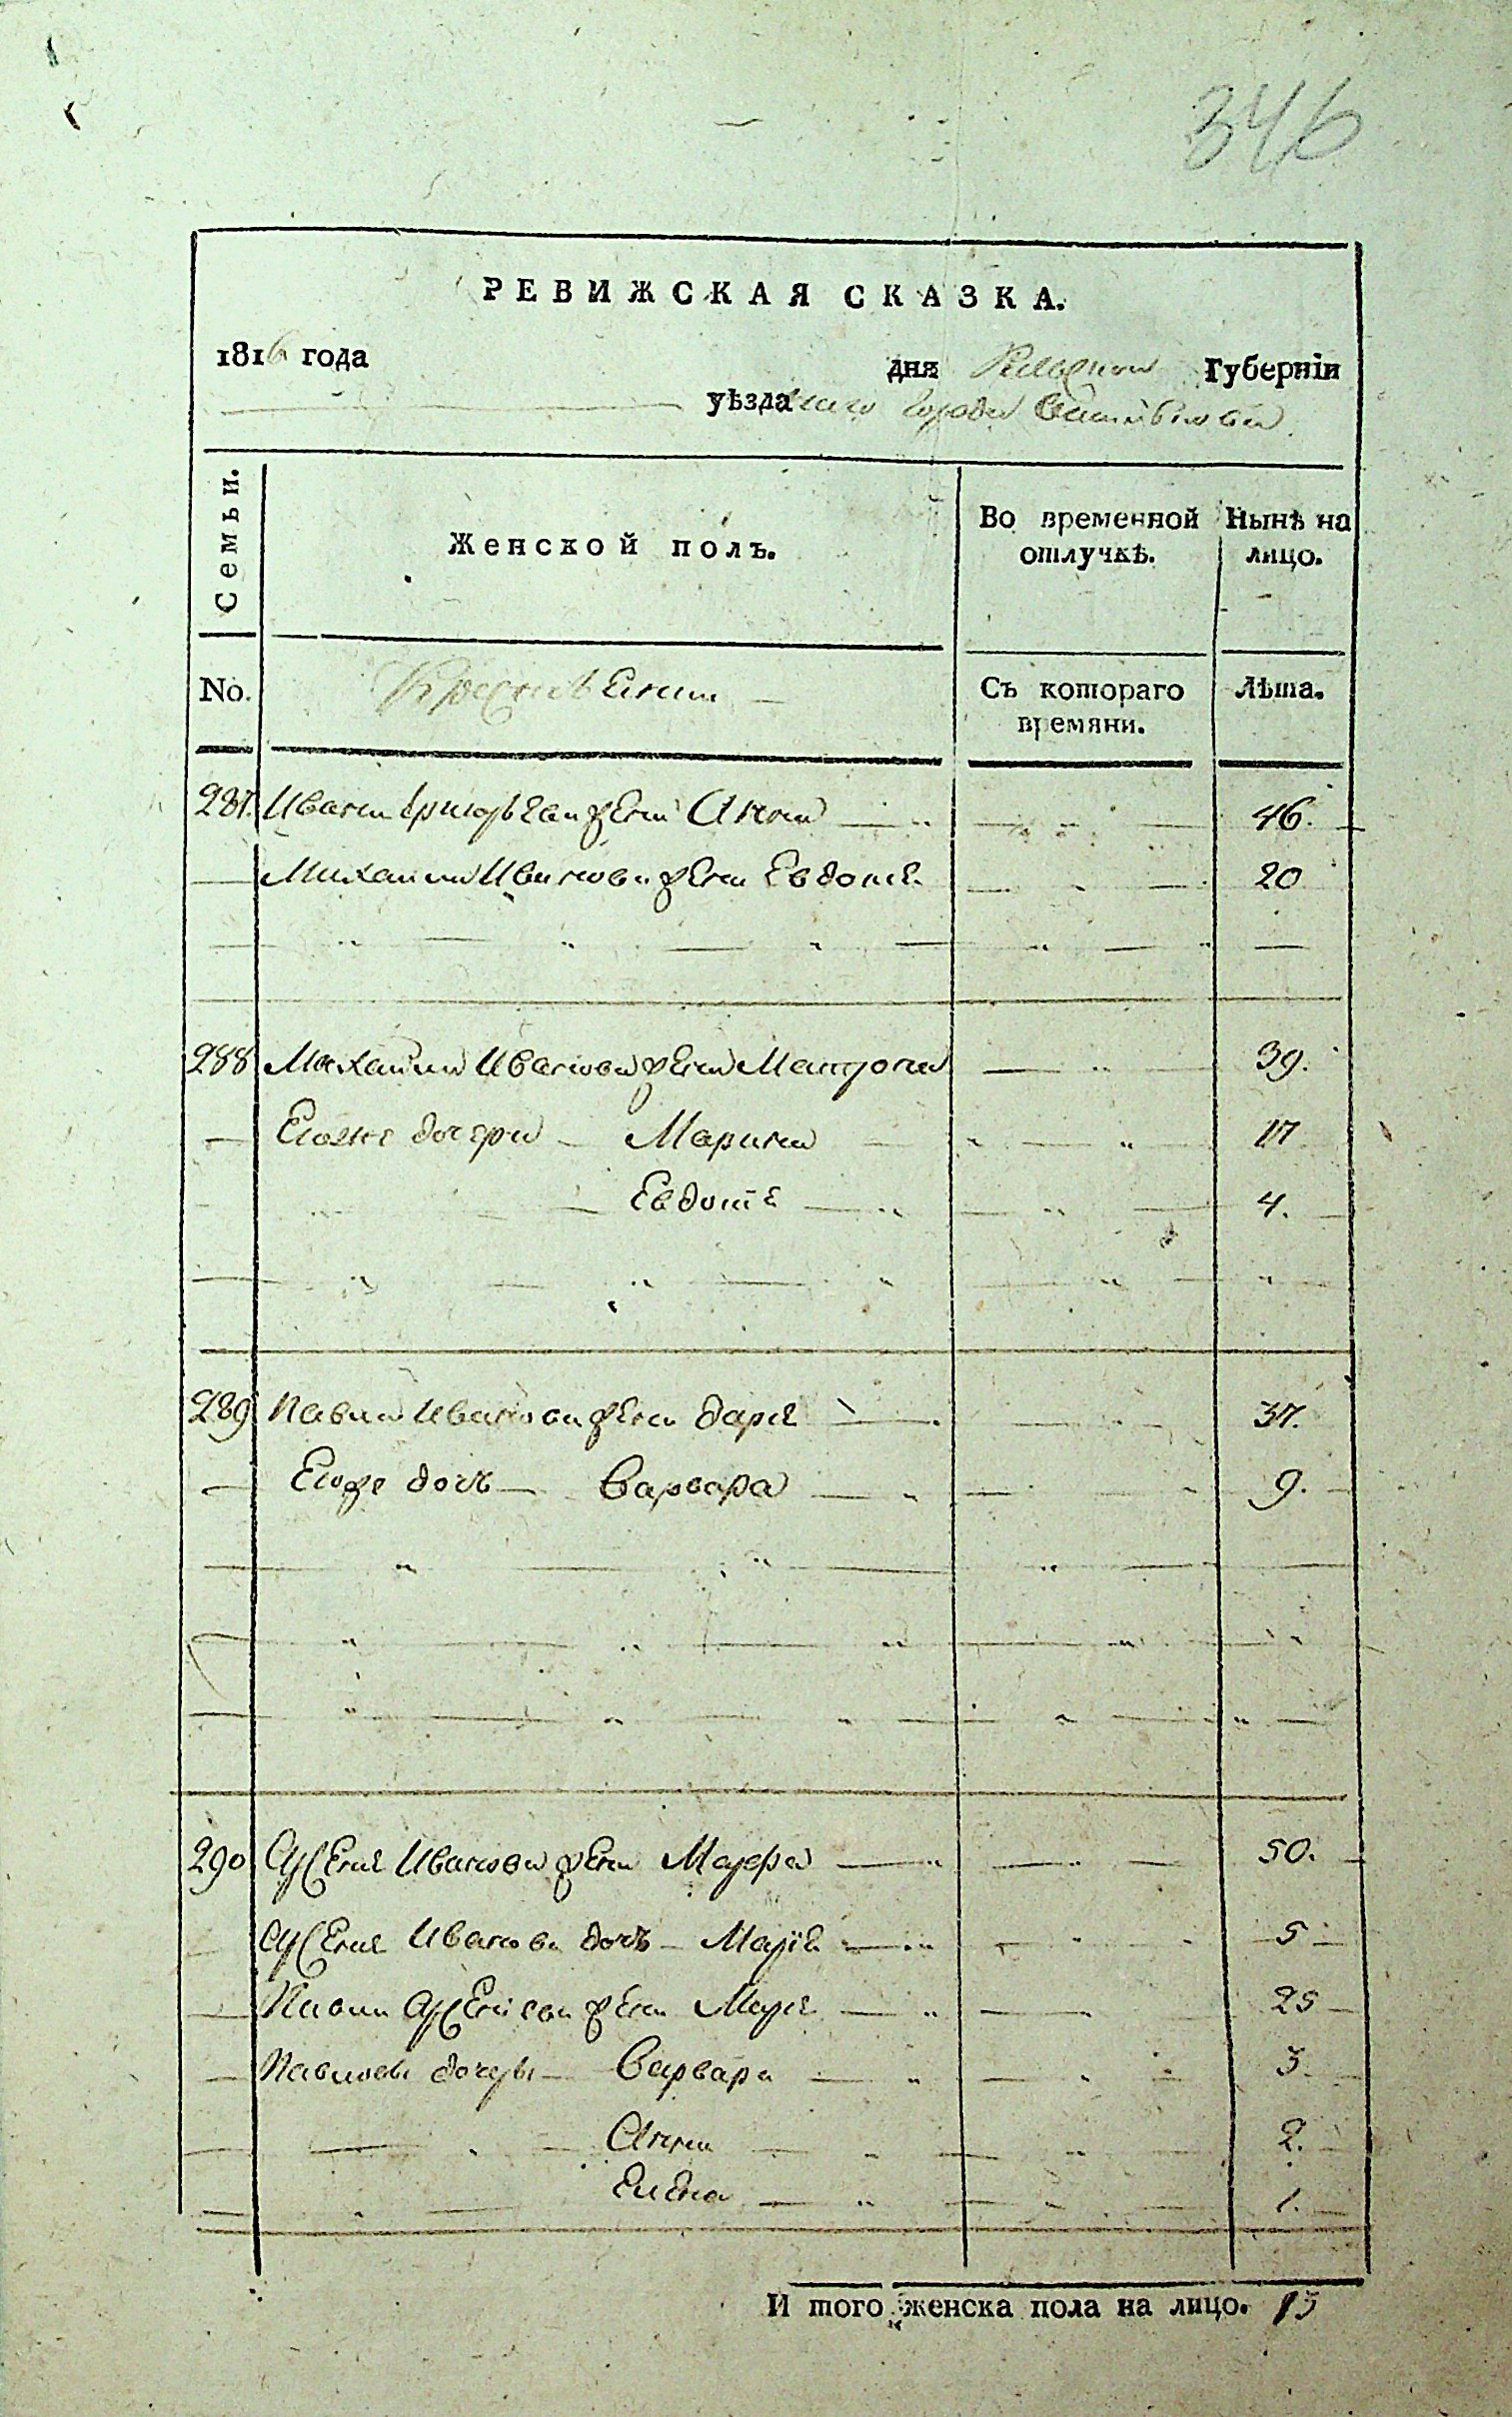 346
РЕВИЖСКАЯ СКАЗКА.
1816 года
дня Губерніи
уѣзда наго города
Семьи.
Женской полъ.
Во временной отлучкѣ.
Нынѣ на лицо.
No.
Съ котораго времяни.
Лѣта.
287. Ивана Григорьева жена Анна 46.
Михаила Иванова жена Евдотя 20
288 Михаила Иванова жена Матрона 39.
Егоже дочери Марина 17
Евдотя 4.
289 Павла Иванова жена Даря 37.
Егоже дочь Варвара 9.
290 Арсеня Иванова жена 50.
Арсеня Иванова дочь Марія 5
Павла Арсеньева жена Маря 25
Павловы дочеры Варвара 3.
Анна 2.
Елена 1.
И того женска пола на лицо. 13